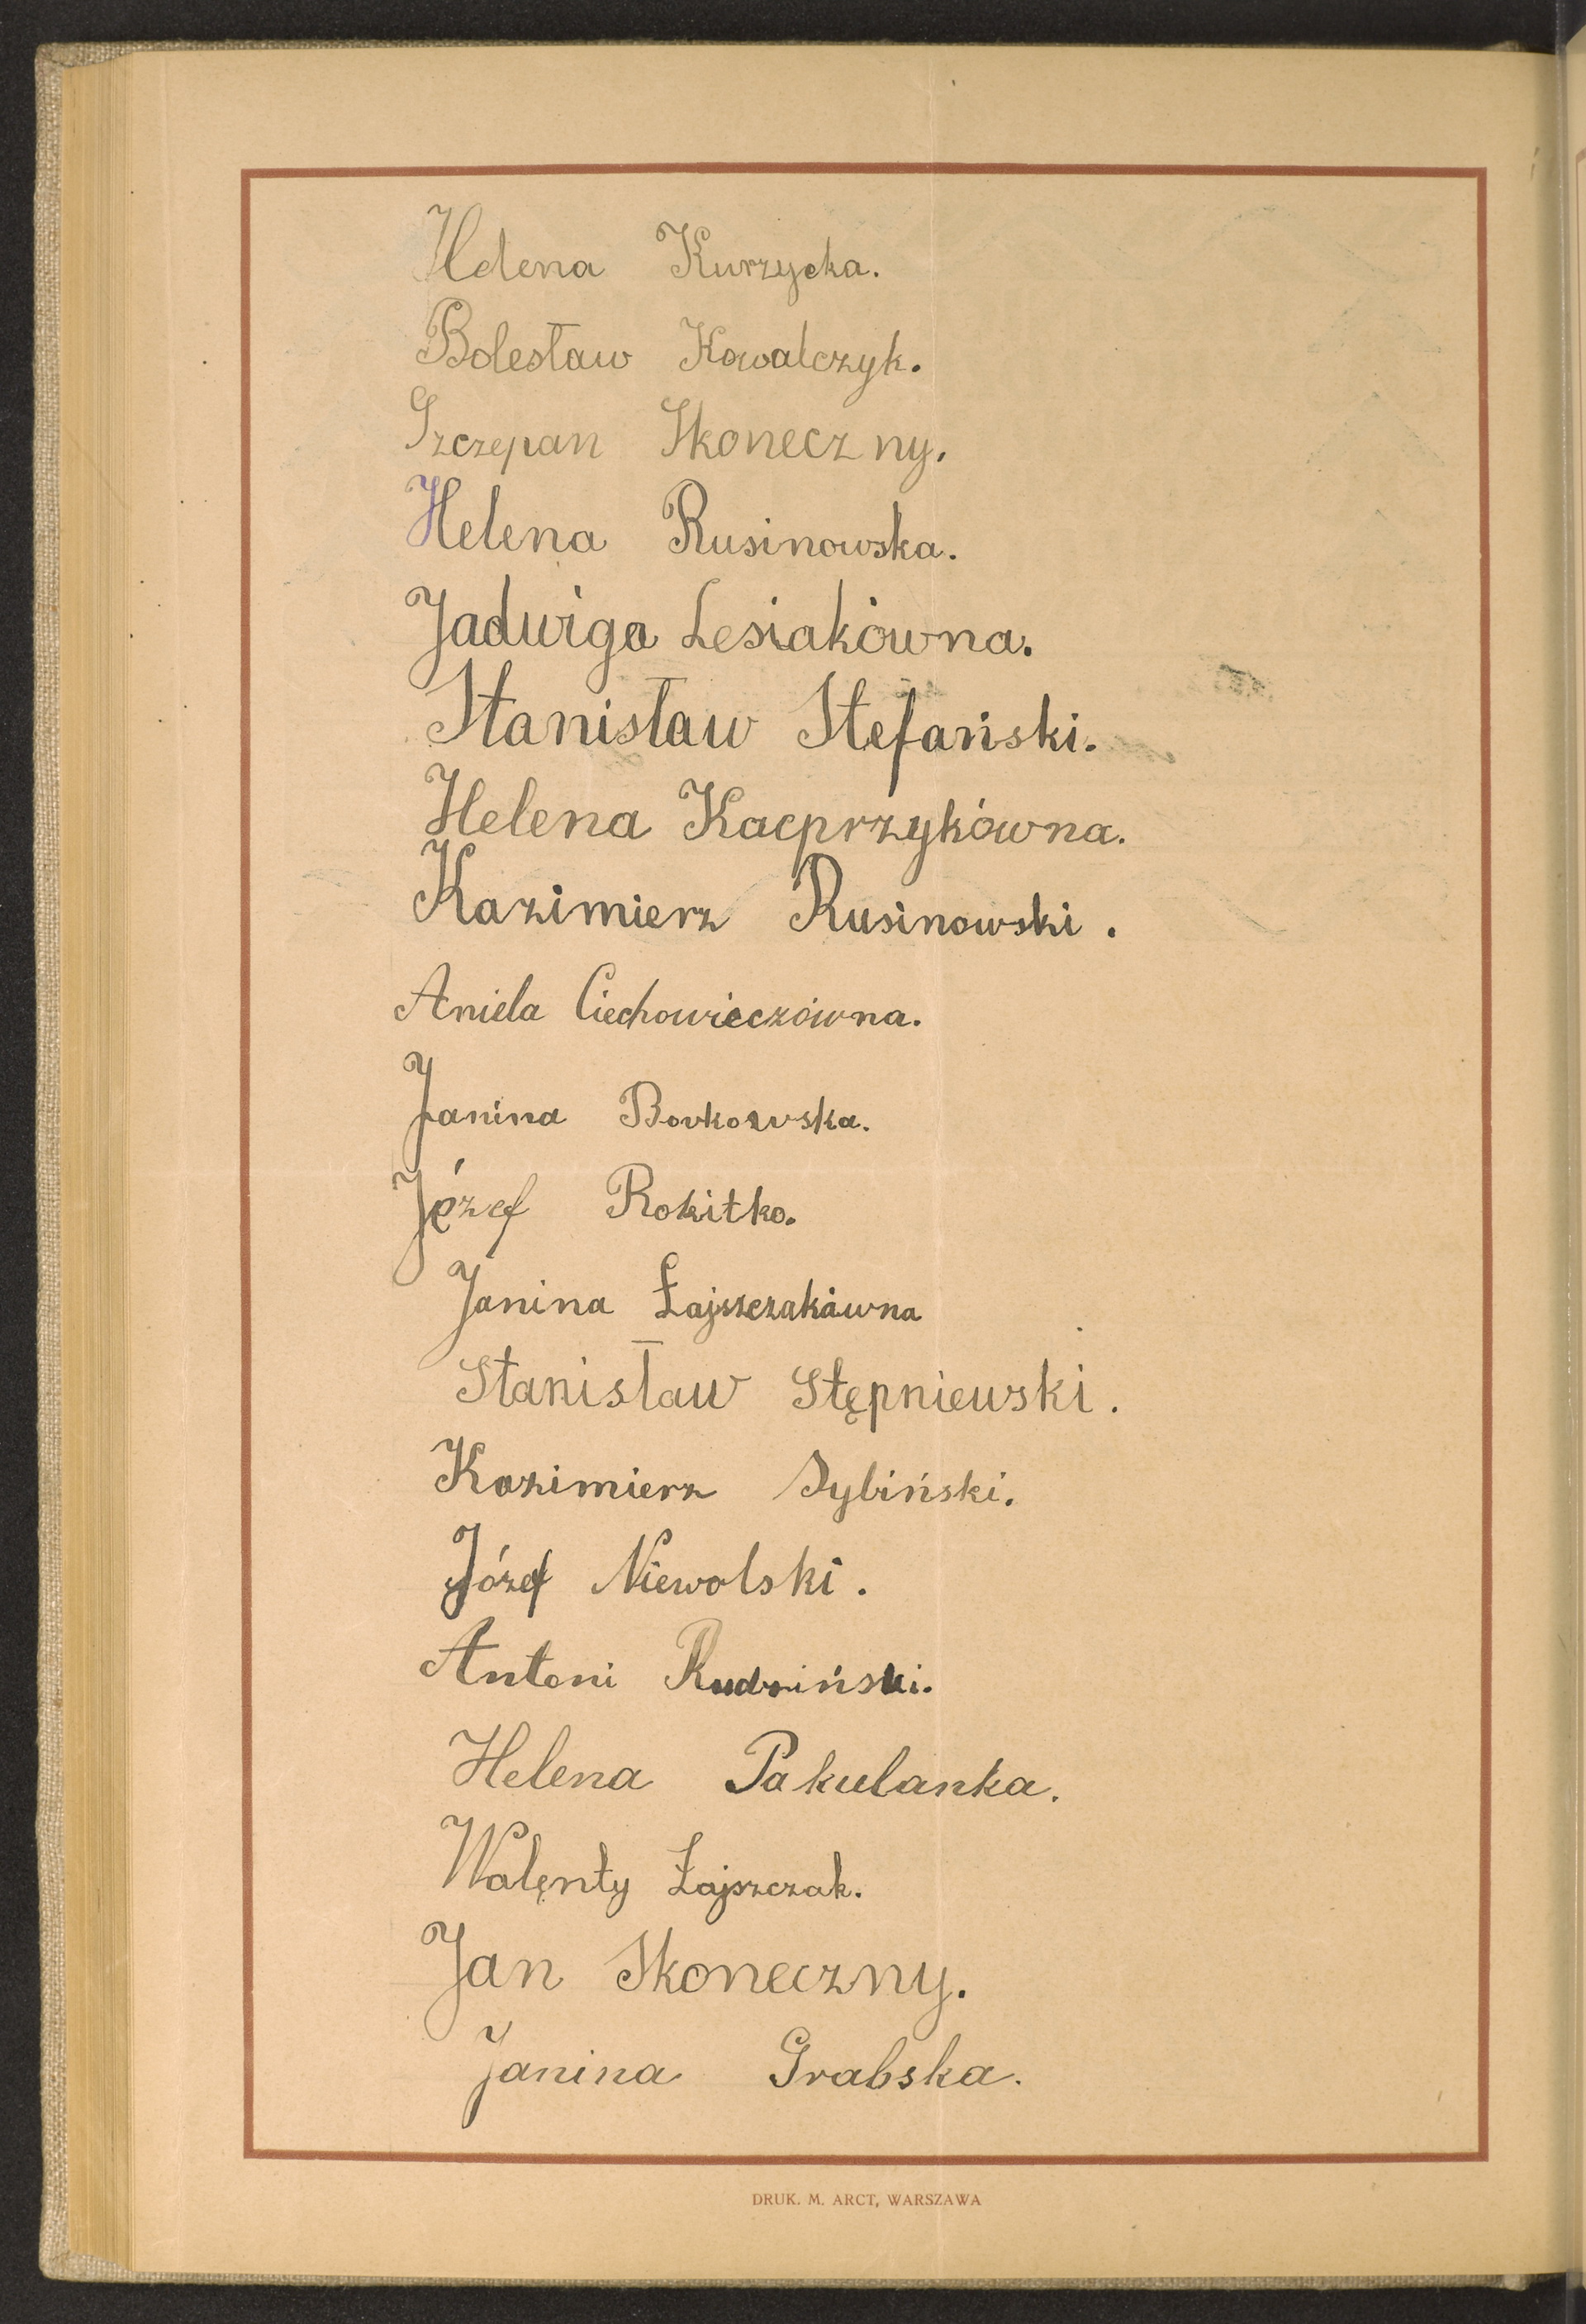 Helena Kurzycka.
Bolesław Kowalczyk.
Szczepan Skoneczny.
Helena Rusinowska.
Jadwiga Lesiakówna.
Stanisław Stefański.
Helena Kacprzykówna.
Kazimierz Rusinowski.
Aniela Ciechowiczówna.
Janina Borkowska.
Józef Rokitko.
Janina Łajszczakówna
Stanisław Stępniewski.
Kazimierz Sybiński.
Józef Niewolski.
Antoni Rudziński.
Helena Pakulanka.
Walęnty Łajszczak.
Jan Skoneczny.
Janina Grabska.
DRUK. M. ARCT, WARSZAWA